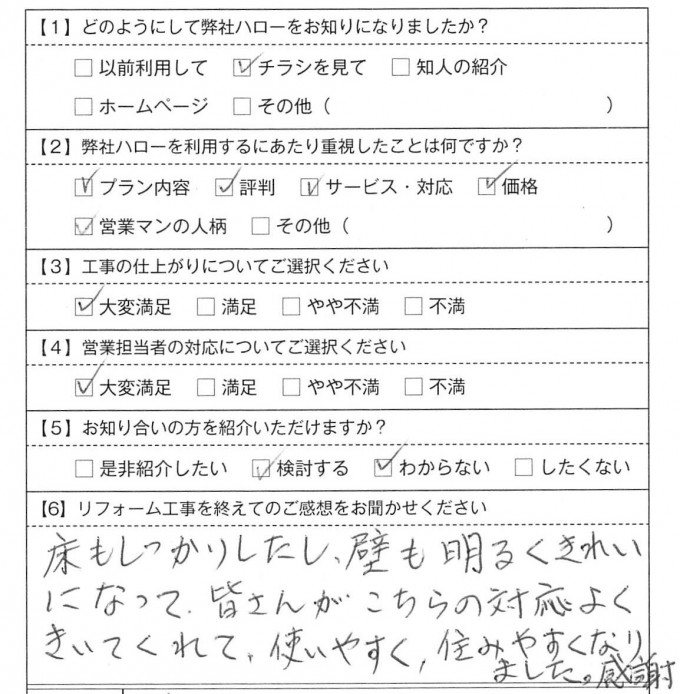 【1】どのようにして弊社ハローをお知りになりましたか？
□以前利用して ☑チラシを見て □知人の紹介
□ホームページ □その他（ ）
【2】弊社ハローを利用するにあたり重視したことは何ですか？
☑プラン内容 ☑評判 ☑サービス・対応 ☑価格
☑営業マンの人柄 □その他（ ）
【3】工事の仕上がりについてご選択ください
☑大変満足 □満足 □やや不満 □不満
【4】営業担当者の対応についてご選択ください
☑大変満足 □満足 □やや不満 □不満
【5】お知り合いの方を紹介いただけますか？
□是非紹介したい ☑検討する ☑わからない □したくない
【6】リフォーム工事を終えてのご感想をお聞かせください
床もしっかりしたし、壁も明るくきれい
になって、皆さんがこちらの対応よく
きいてくれて、使いやすく、住みやすくなり
ました。感謝